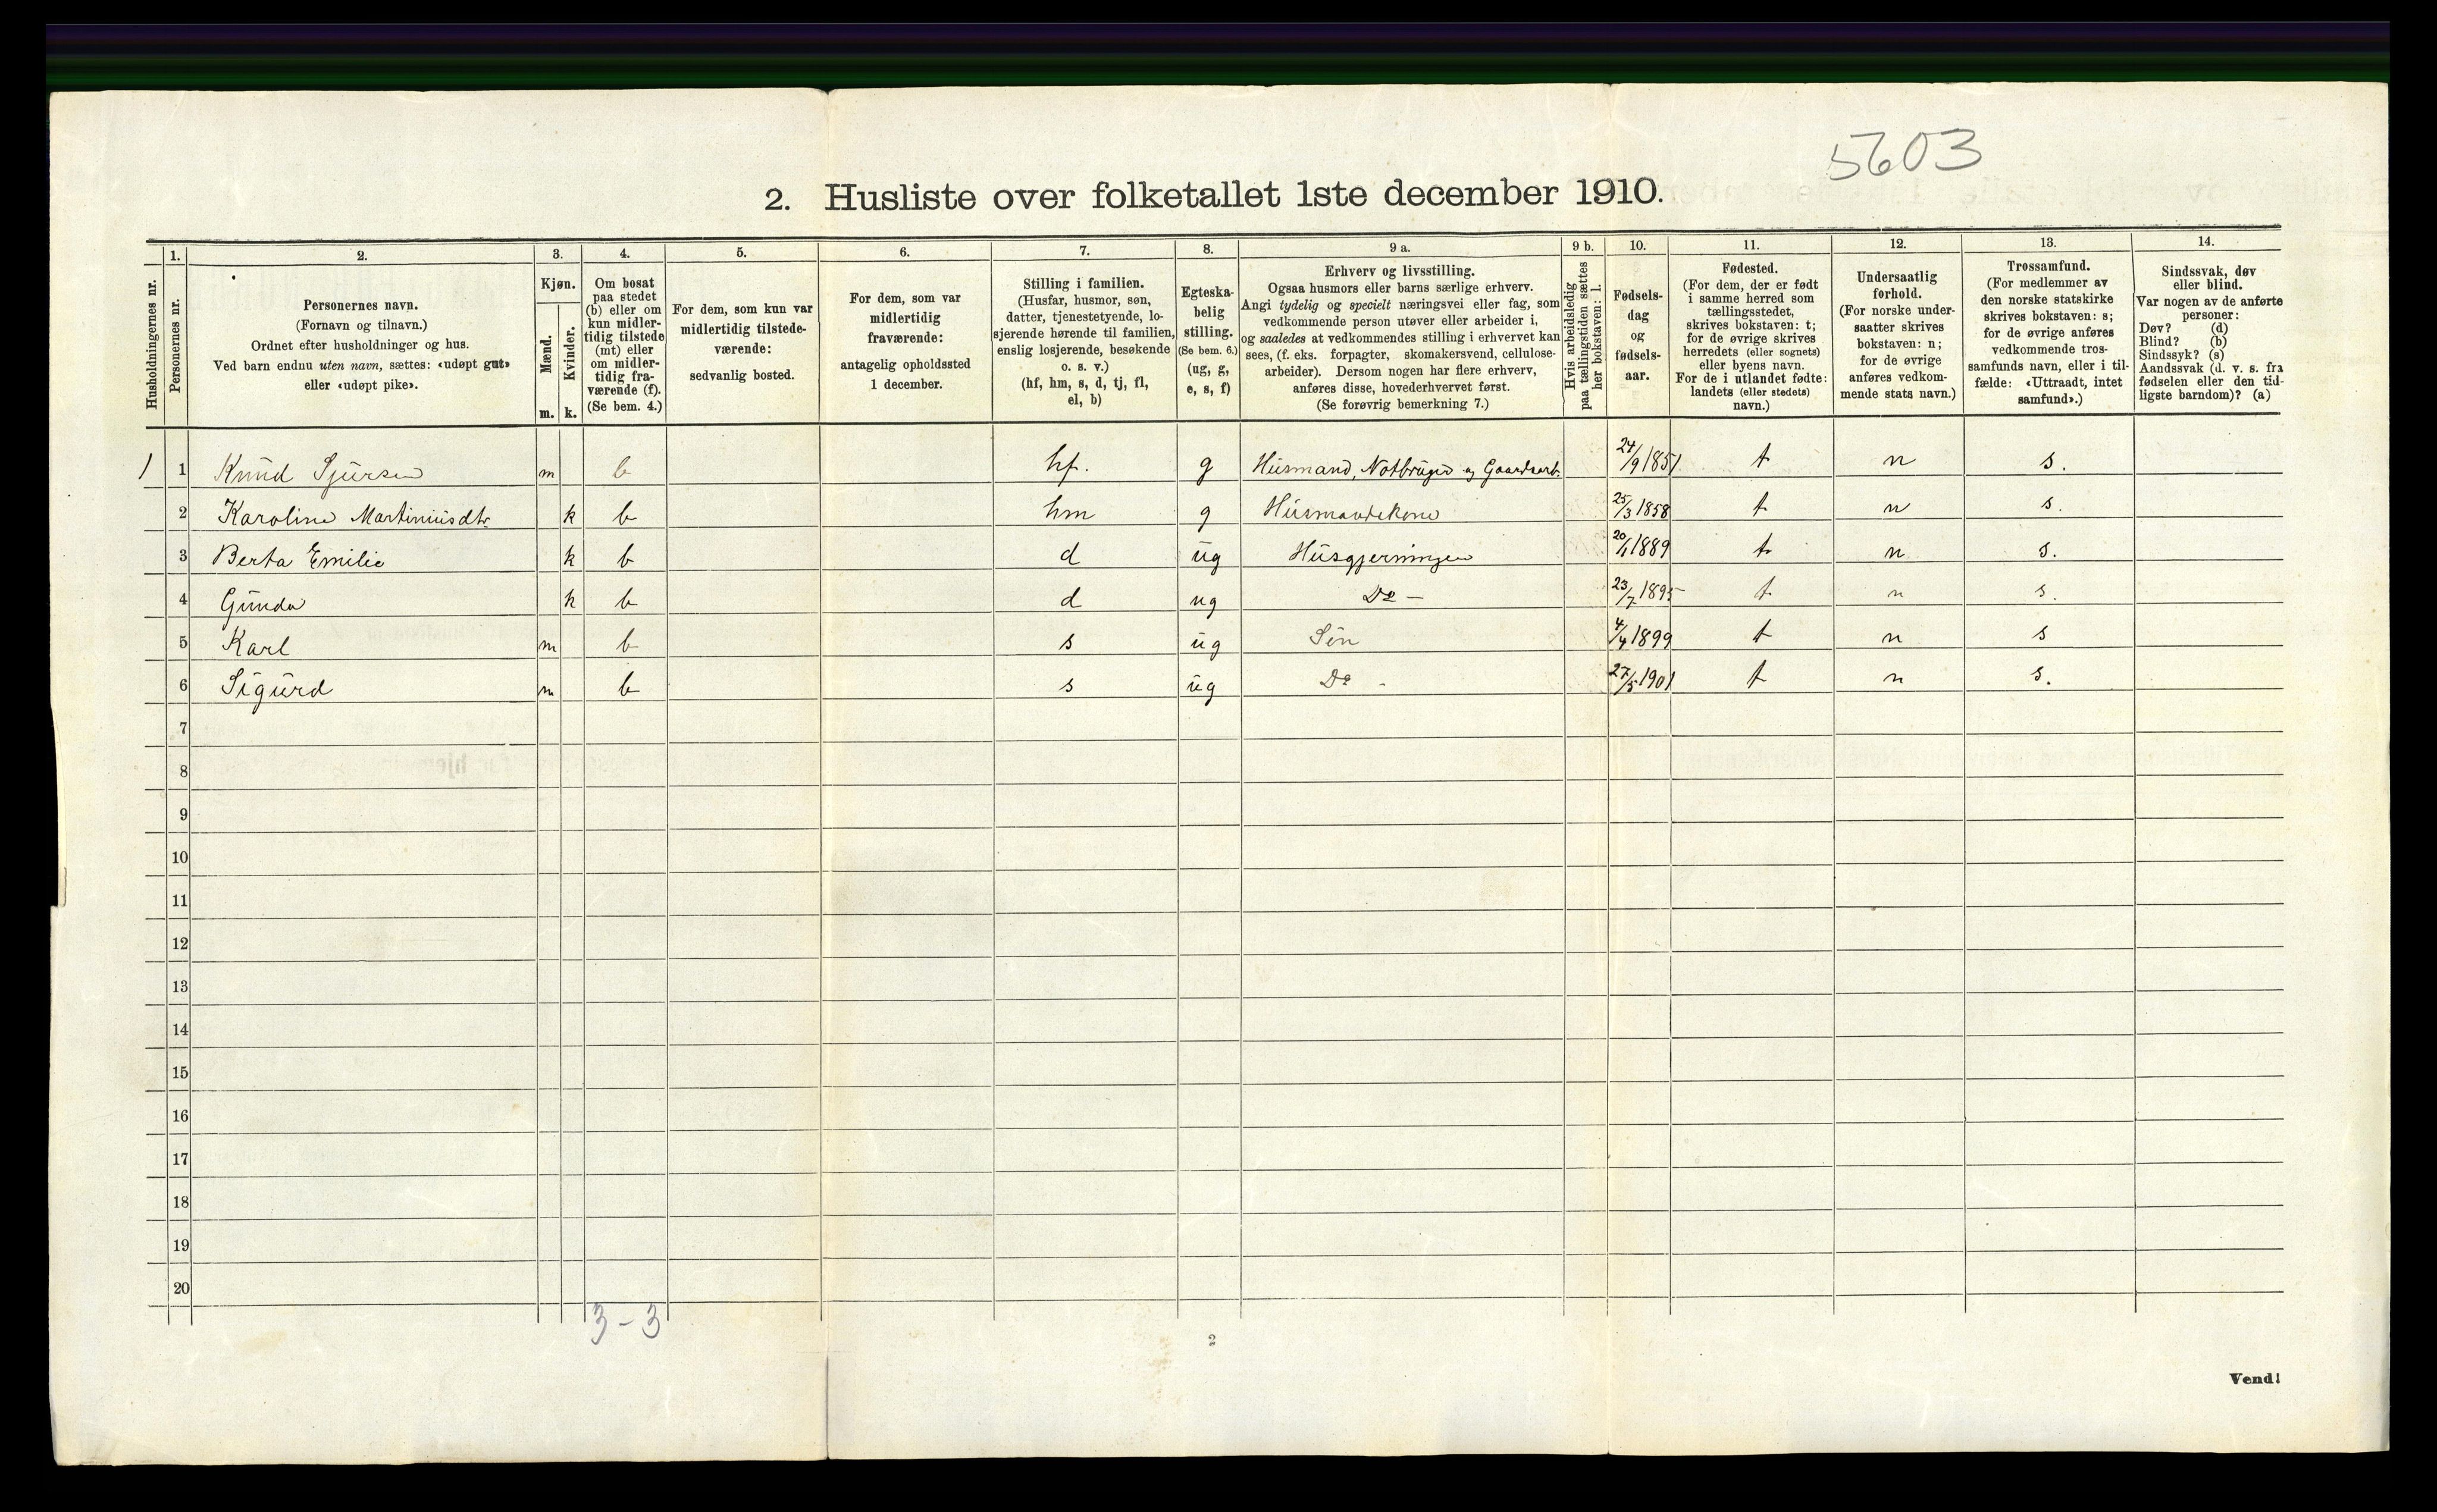 5603
2. Husliste over folketallet 1ste december 1910.
Husholdningernes nr.
1.
Personernes nr.
2.
Personernes navn.
(Fornavn og tilnavn.)
Ordnet efter husholdninger og hus.
Ved barn endnu uten navn, sættes: «udøpt gut»
eller «udøpt pike».
3.
Kjøn.
Mænd.
Kvinder.
m. k.
4.
Om bosat
paa stedet
(b) eller om
kun midler-
tidig tilstede
(mt) eller
om midler-
tidig fra-
værende (f).
(Se bem. 4.)
5.
For dem, som kun var
midlertidig tilstede-
værende:
sedvanlig bosted.
6.
For dem, som var
midlertidig
fraværende:
antagelig opholdssted
1 december.
7.
Stilling i familien.
(Husfar, husmor, søn,
datter, tjenestetyende, lo-
sjerende hørende til familien,
enslig losjerende, besøkende
o. s. v.)
(hf, hm, s, d, tj, fl,
el, b)
8.
Egteska-
belig
stilling.
(Se bem. 6.)
(ug, g,
e, s, f)
9 a.
Erhverv og livsstilling.
Ogsaa husmors eller barns særlige erhverv.
Angi tydelig og specielt næringsvei eller fag, som
vedkommende person utøver eller arbeider i,
og saaledes at vedkommendes stilling i erhvervet kan
sees, (f. eks. forpagter, skomakersvend, cellulose-
arbeider). Dersom nogen har flere erhverv,
anføres disse, hovederhvervet først.
(Se forøvrig bemerkning 7.)
9 b.
Hvis arbeidsledig
paa tællingstiden sættes
her bokstaven: l.
10.
Fødsels-
dag
og
fødsels-
aar.
11.
Fødested.
(For dem, der er født
i samme herred som
tællingsstedet,
skrives bokstaven: t;
for de øvrige skrives
herredets (eller sognets)
eller byens navn.
For de i utlandet fødte:
landets (eller stedets)
navn.)
12.
Undersaatlig
forhold.
(For norske under-
saatter skrives
bokstaven: n;
for de øvrige
anføres vedkom-
mende stats navn.)
13.
Trossamfund.
(For medlemmer av
den norske statskirke
skrives bokstaven: s;
for de øvrige anføres
vedkommende tros-
samfunds navn, eller i til-
fælde: «Uttraadt, intet
samfund».)
14.
Sindssvak, døv
eller blind.
Var nogen av de anførte
personer:
Døv? (d)
Blind? (b)
Sindssyk? (s)
Aandssvak (d. v. s. fra
fødselen eller den tid-
ligste barndom)? (a)
1 1 Knud Sjursen m b hf. g Husmand, Notbruger og Gaardsarb. 24/9 1851 t n s.
2 Karoline Martiniusdtr. k b hm g Husmandskone 25/3 1858 t n s.
3 Berta Emilie k b d ug Husgjerningen 20/1 1889 t n s.
4 Gunda k b d ug Do - 23/7 1895 t n s.
5 Karl m b s ug Søn 4/4 1899 t n s
6 Sigurd m b s ug Do - 27/5 1901 t n s.
7
8
9
10
11
12
13
14
15
16
17
18
19
20
3-3
2
Vend!